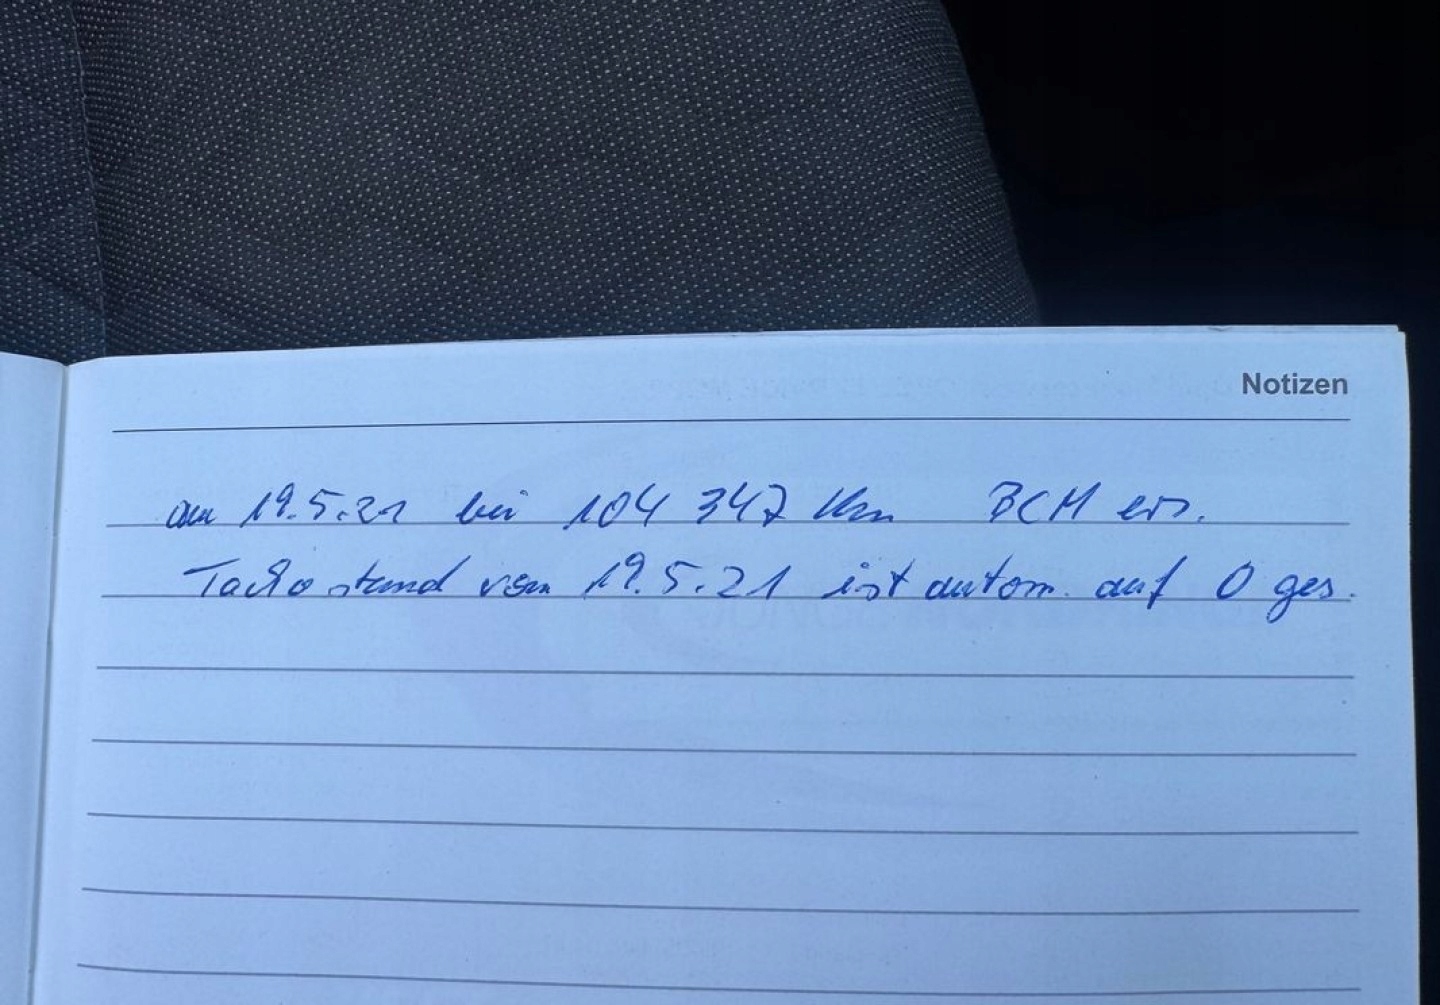 Notizen
am 19.5.21 bei 104 347 Km BCM ers.
Tachostand vom 19.5.21 ist autom. auf 0 ges.